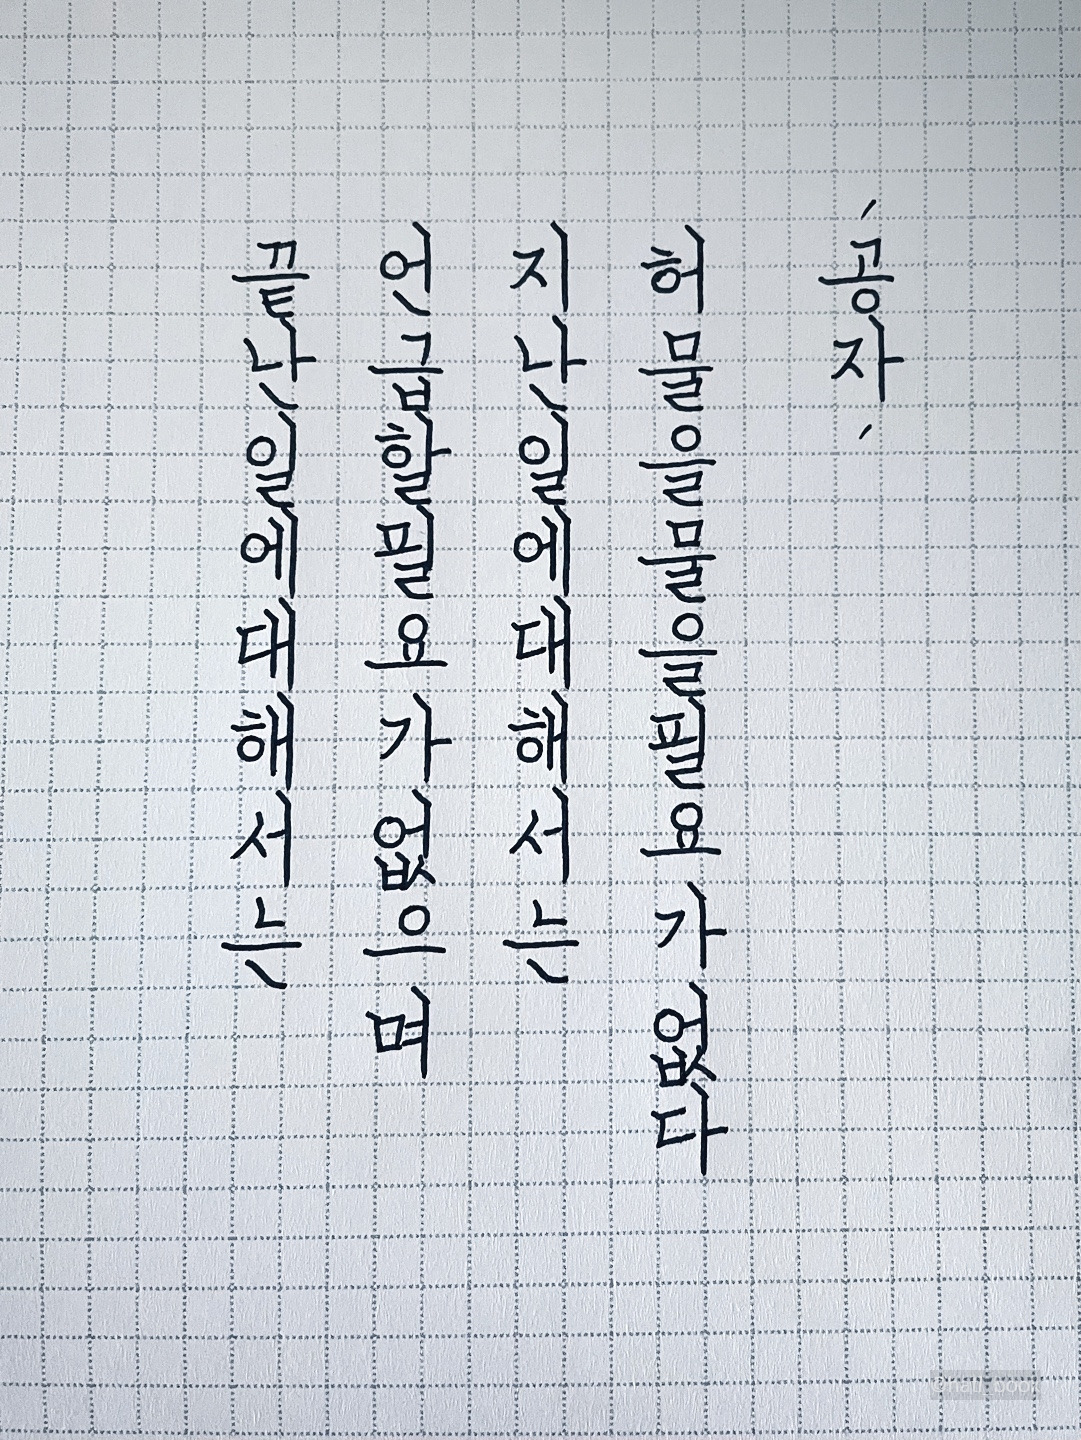 끝난일에대해서는
언급할필요가없으며
지난일에대해서는
허물을물을필요가없다
'공자'